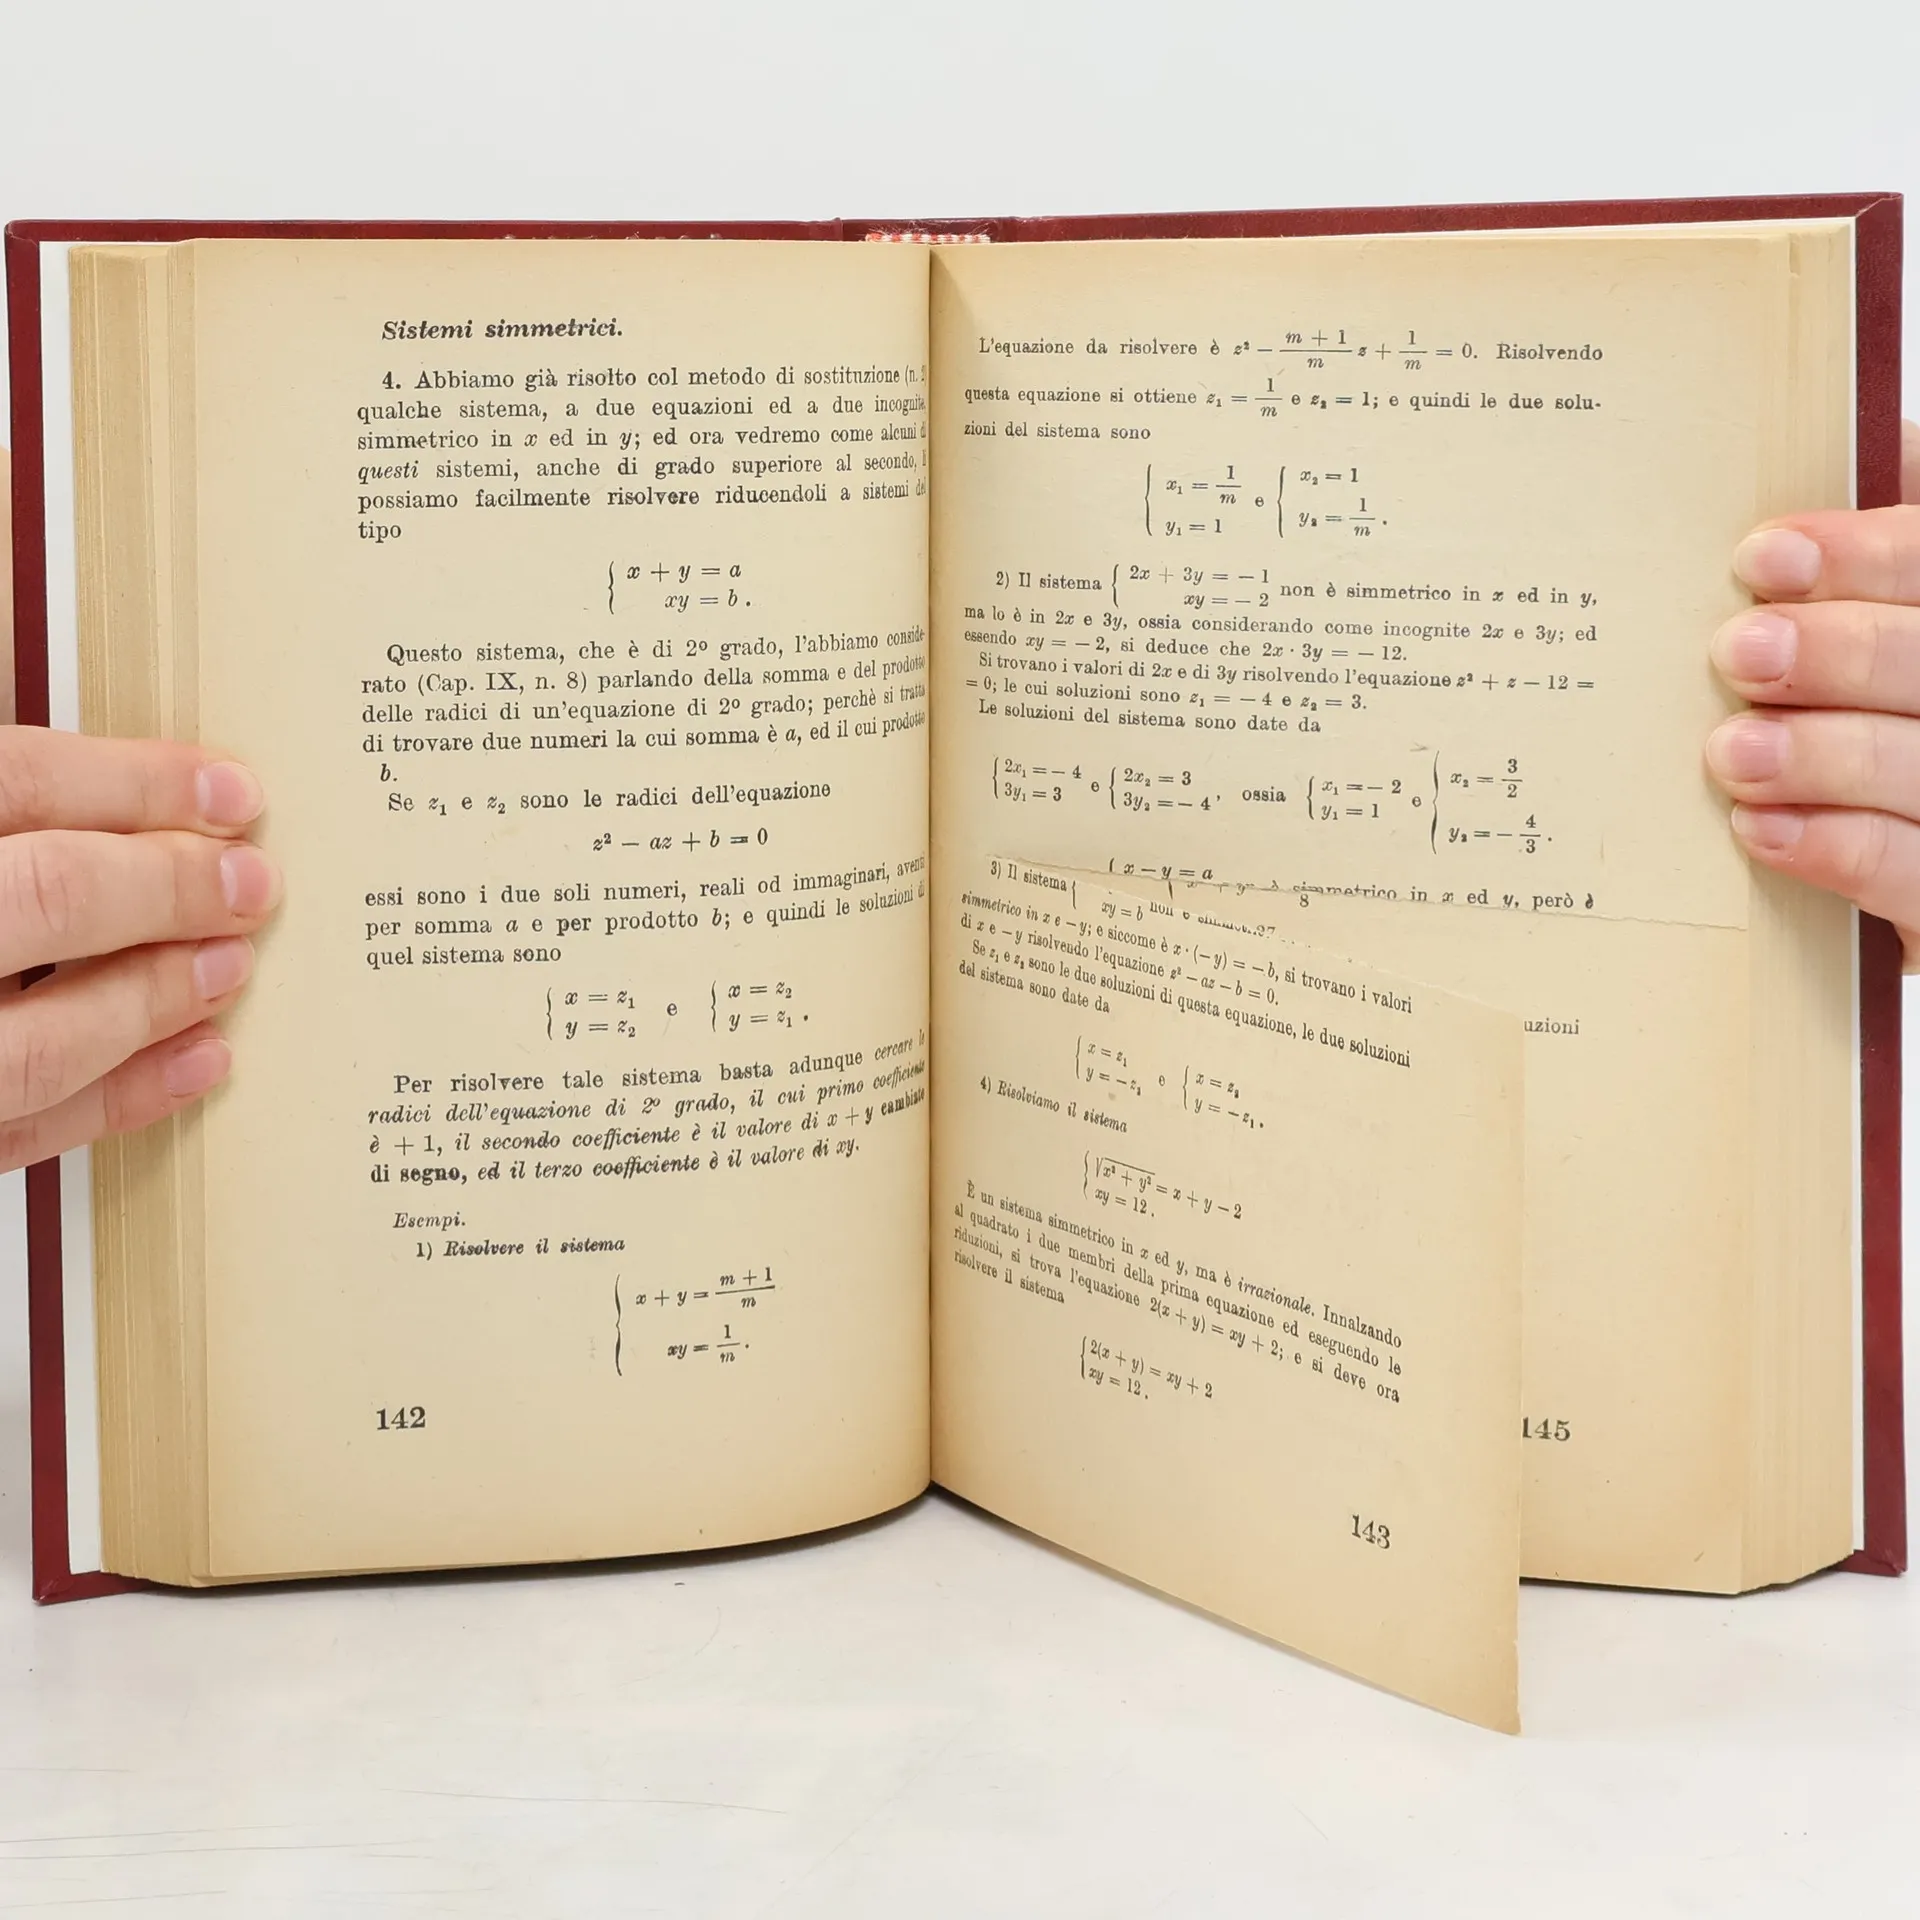 Sistemi simmetrici.
4. Abbiamo già risolto col metodo di sostituzione (n. 2
qualche sistema, a due equazioni ed a due incognite,
simmetrico in x ed in y; ed ora vedremo come alcuni di
questi sistemi, anche di grado superiore al secondo, li
possiamo facilmente risolvere riducendoli a sistemi del
tipo
{ x + y = a
xy = b .
Questo sistema, che è di 2º grado, l'abbiamo conside-
rato (Cap. IX, n. 8) parlando della somma e del prodotto
delle radici di un'equazione di 2º grado; perchè si tratta
di trovare due numeri la cui somma è a, ed il cui prodotto
b.
Se z₁ e z₂ sono le radici dell'equazione
z² — az + b = 0
essi sono i due soli numeri, reali od immaginari, aventi
per somma a e per prodotto b; e quindi le soluzioni di
quel sistema sono
{ x = z₁ e { x = z₂
y = z₂ y = z₁ .
Per risolvere tale sistema basta adunque cercare le
radici dell'equazione di 2º grado, il cui primo coefficiente
è + 1, il secondo coefficiente è il valore di x + y cambiato
di segno, ed il terzo coefficiente è il valore di xy.
Esempi.
1) Risolvere il sistema
{ x + y = (m + 1)/m
xy = 1/m .
142
L'equazione da risolvere è z² — (m + 1)/m z + 1/m = 0. Risolvendo
questa equazione si ottiene z₁ = 1/m e z₂ = 1; e quindi le due solu-
zioni del sistema sono
{ x₁ = 1/m e { x₂ = 1
y₁ = 1 y₂ = 1/m .
2) Il sistema { 2x + 3y = — 1
xy = — 2 non è simmetrico in x ed in y,
ma lo è in 2x e 3y, ossia considerando come incognite 2x e 3y; ed
essendo xy = — 2, si deduce che 2x · 3y = — 12.
Si trovano i valori di 2x e di 3y risolvendo l'equazione z² + z — 12 =
= 0; le cui soluzioni sono z₁ = — 4 e z₂ = 3.
Le soluzioni del sistema sono date da
{ 2x₁ = — 4 e { 2x₂ = 3 , ossia { x₁ = — 2 e { x₂ = 3/2
3y₁ = 3 3y₂ = — 4 y₁ = 1 y₂ = — 4/3 .
3) Il sistema { x — y = a
xy = b non è simmetrico in x ed y, però è
simmetrico in x e — y; e siccome è x · (— y) = — b, si trovano i valori
di x e — y risolvendo l'equazione z² — az — b = 0.
Se z₁ e z₂ sono le due soluzioni di questa equazione, le due soluzioni
del sistema sono date da
{ x = z₁ e { x = z₂
y = — z₂ y = — z₁ .
4) Risolviamo il sistema
{ √x² + y² = x + y — 2
xy = 12 .
È un sistema simmetrico in x ed y, ma è irrazionale. Innalzando
al quadrato i due membri della prima equazione ed eseguendo le
riduzioni, si trova l'equazione 2(x + y) = xy + 2; e si deve ora
risolvere il sistema
{ 2(x + y) = xy + 2
xy = 12 .
143
uzioni
145